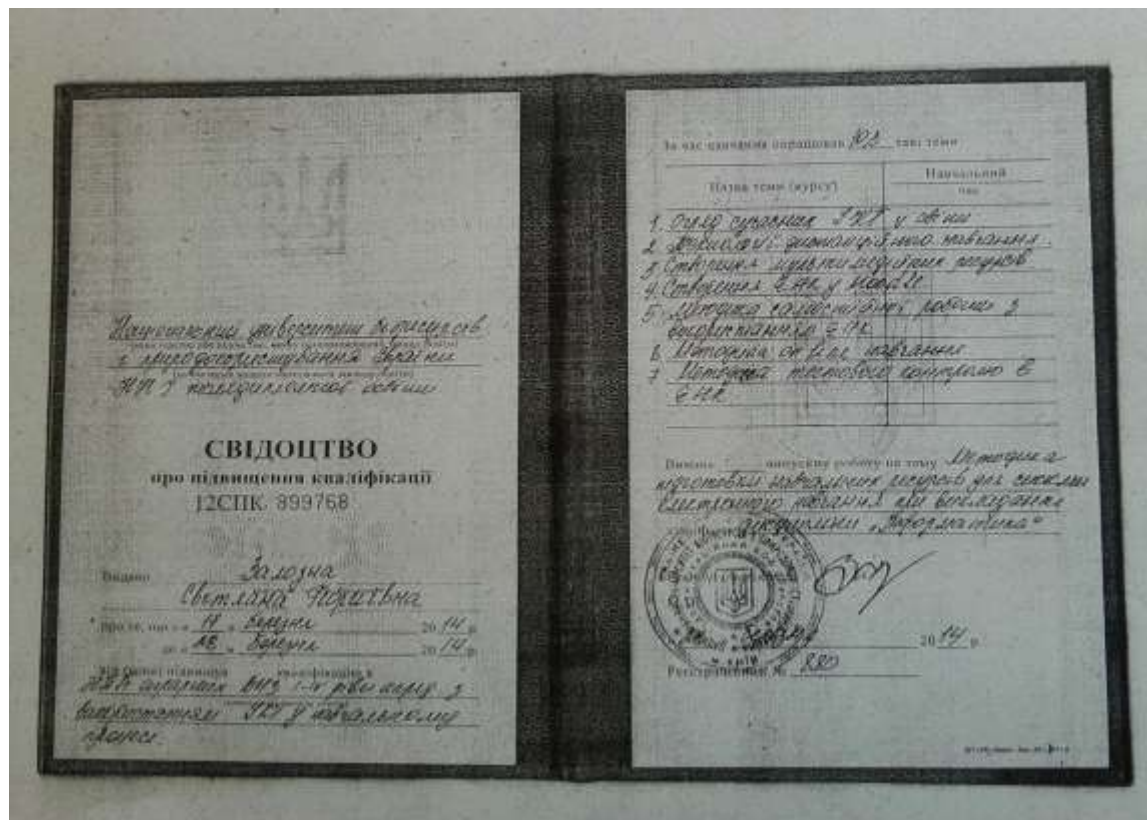 Національний університет біоресурсів
і природокористування України
ННІ післядипломної освіти
СВІДОЦТВО
про підвищення кваліфікації
12СПК 899768
Видано Залозна
Світлана
про те, що з „ березня 2014 р.
до „ березня 2014 р.
кваліфікацію в
аграрних ВНЗ I-IV рівн акред з
використанням ІКТ у навчальному
процесі.
За час навчання опрацював такі теми
Назва теми (курсу) Навчальний
час
1. Огляд сучасних ІКТ у освіті
2. Технології дистанційного навчання
3. Створення мультимедійних ресурсів
4. Створення ЕНК у
5. Методика самостійної роботи з
використанням ЕНК
6. Методика навчання
7. Методика тестового контролю в
ЕНК
Виконав випускну роботу на тему Методика
підготовки навчальних ресурсів для системи
електронного навчання при викладанні
дисципліни „Інформатика“
2014 р.
Реєстраційний № 880